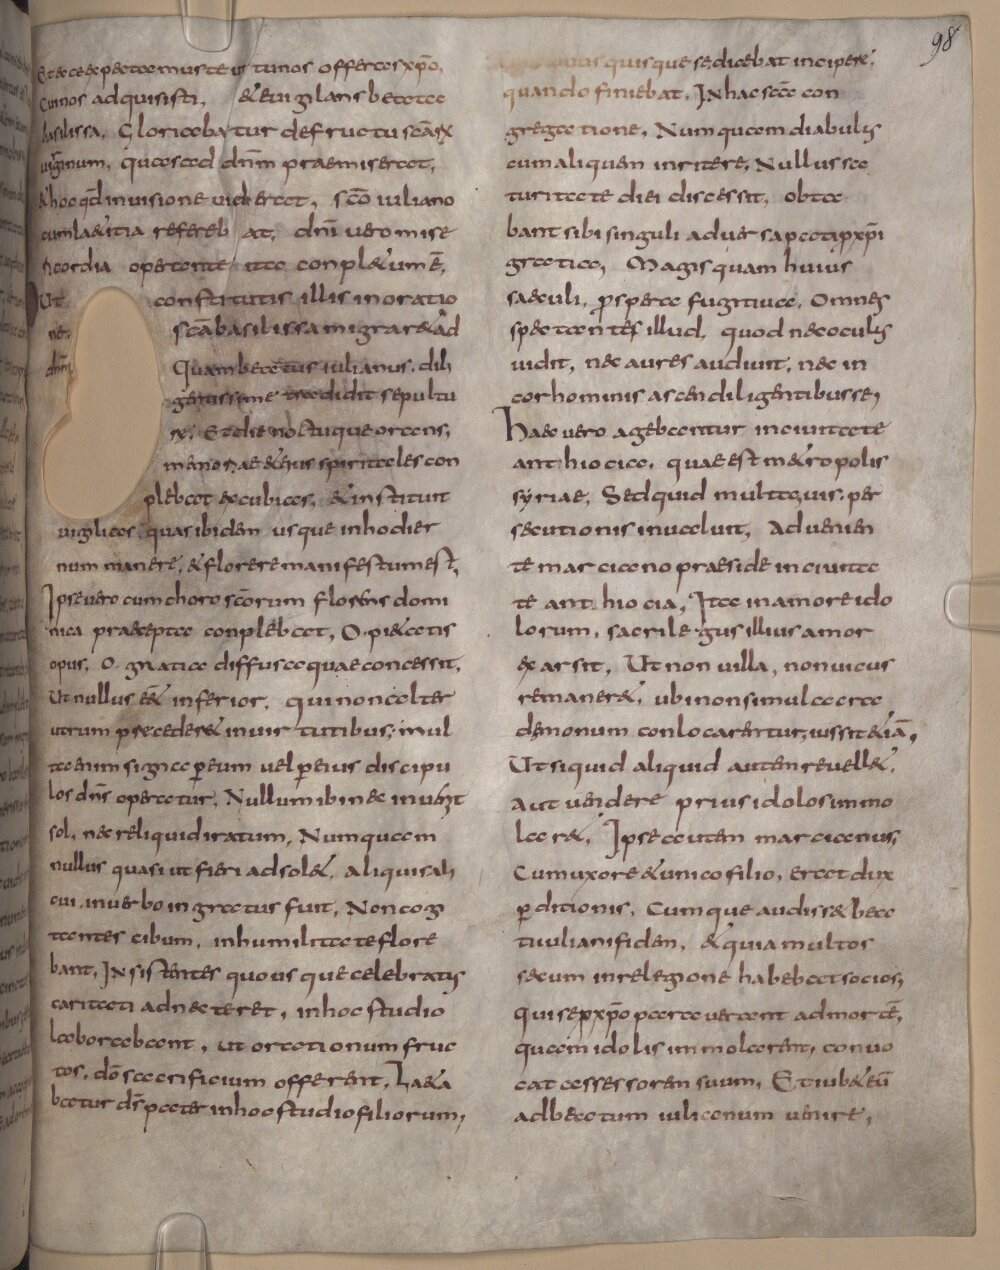 98
Et ecce expectamus te ut nos offeras xp̄o,
cui nos adquisisti, & euigilans beata
basilissa, Gloriabatur de fructu scāsꝝ
uirginum, quas ad dn̄m praemiserat,
& hoc qđ in uisione uiderat, sc̄o iuliano
cum laetitia refereb at, dn̄i uero mise
ricordia operante ita conpl&um ē,
Ut constitutis illis in oratio
ne, sc̄a basilissa migrar& ad
dn̄m, Quam beatus iulianus, dili
gentissime tradidit sepultu
rę, Et die noctuque orans,
memoriae & eius spiritales con
plebat excubias, & instituit
uigilias quas ibidem usque in hodier
num manere, & florere manifestum est,
Ipse uero cum choro sc̄orum florens domi
nica praecepta conplebat, O pi&atis
opus, O gratia diffusa quae concessit,
Ut nullus eēt inferior, qui non alter
utrum praeceder& in uirtutibus, mul
ta enim signa ꝑ eum uel ꝑ eius discipu
los dn̄s operatur, Nullum ibi nex inuenit
sol, nec reliquid iratum, Numquam
nullus quasi ut fieri ad sol&, aliquis ali
cui in uerbo ingratus fuit, Non cog
tantes cibum, in humilitate flore
bant, Insistentes quousque celebratis
caritati adnecteret, in hoc studio
laborabant, ut orationum fruc
tos, dō sacrificium offerent, La&a
batur dn̄s pater in hoc studio filiorum,
quisque se dicebat incipere,
quando finiebat, In hac sc̄a con
gregatione, Numquam diabulus
cum aliquem inritere, Nullus sa
turitate diei discessit, obta
bant sibi singuli aduersa pati p xp̄i
gratia, Magis quam huius
saeculi, ꝓspera fugitiua, Omnes
spectantes illud, quod nec oculis
uidit, nec aures audiuit, nec in
cor hominis ascen diligentibus se,
Haec uero agebantur in ciuitate
anthiocia, quae est m&ropolis
syriae, Sed quid multa, uis per
secutionis inualuit, Aduenien
te marciano praeside in ciuita
te anthiocia, Ita in amore ido
lorum, sacrilegus illius amor
exarsit, Ut non uilla, non uicus
remaner&, ubi non simulacra
demonum conlocarentur, iussit & iā,
Ut si quid aliquid autem reuell&,
aut uendere prius idolos immo
lar&, Ipse autem marcianus,
Cum uxore & unico filio, erat dux
ꝑditionis, Cumque audiss& bea
ti iuliani fidem, & quia multos
secum in relegione habebat socios,
qui se p xp̄o parauerant ad mortē,
quam idolis immolarent, conuo
cat assessorem suum, Et iub& eū
ad beatum iulianum uenire,